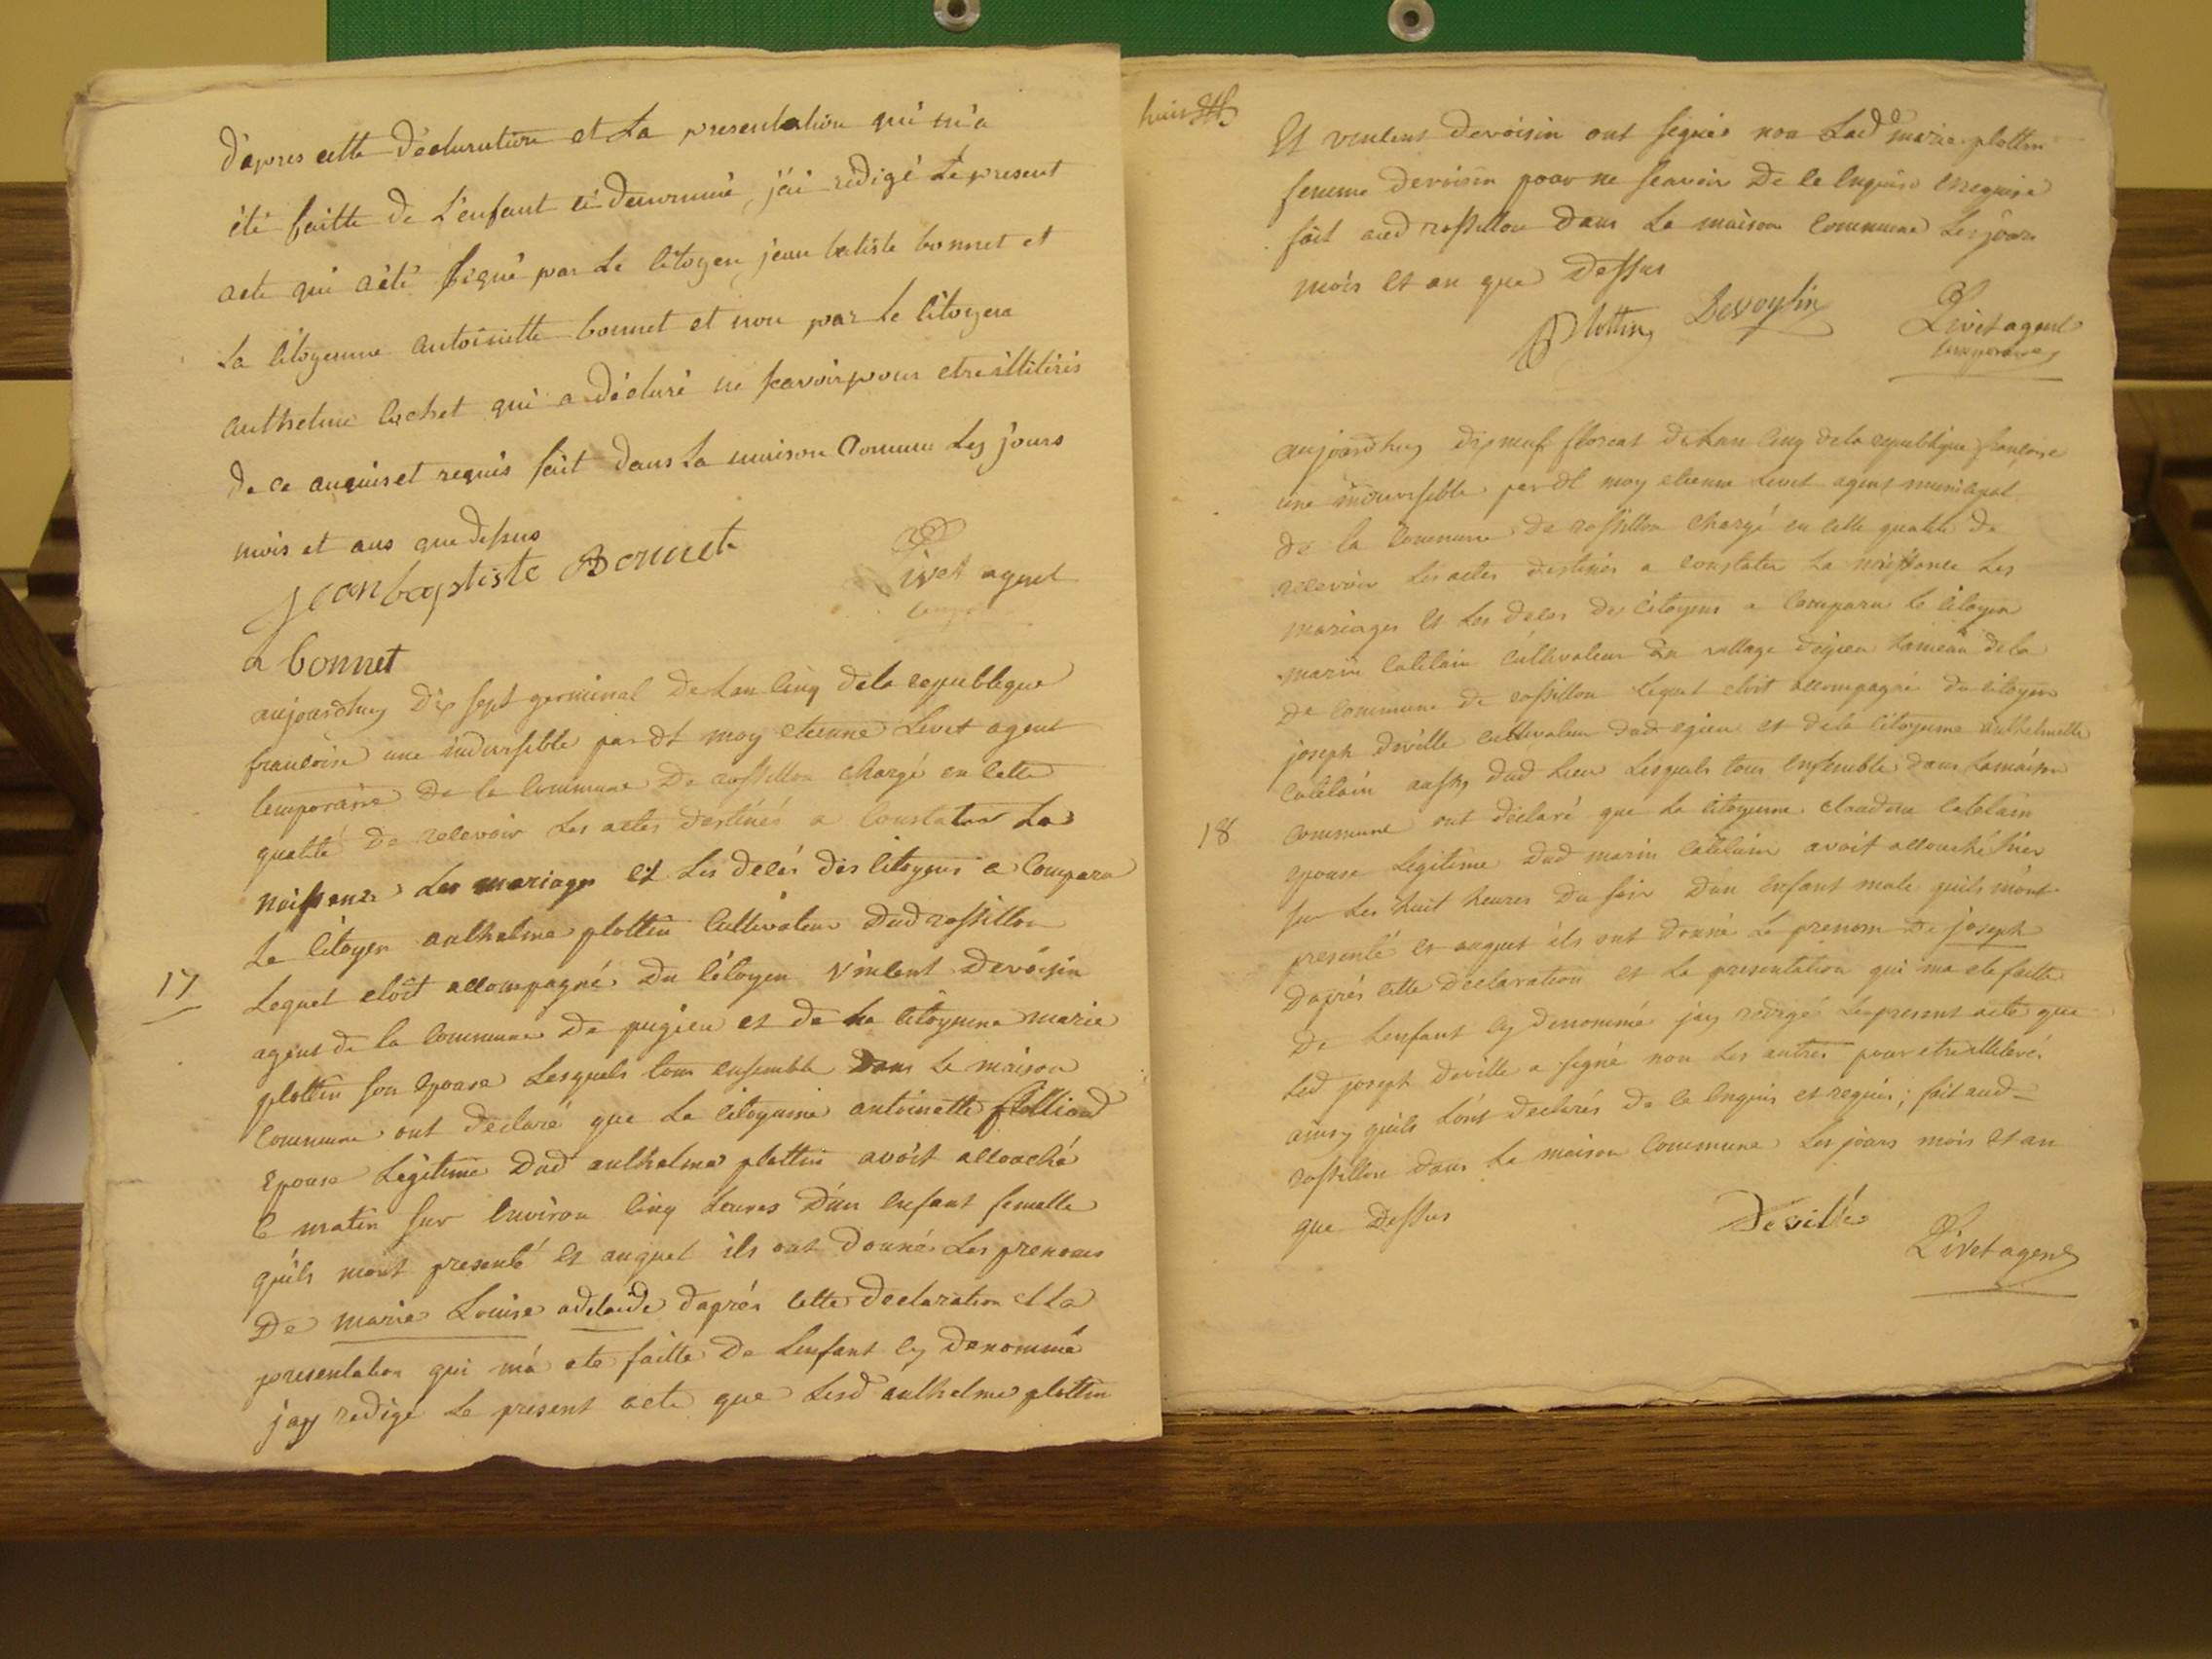 d'apres cette déclaration et La presentation qui m'a
été faitte de L'enfant ci denommé, j'ai redigé Le present
acte qui a été signé par Le citoyen jean batiste bonnet et
La citoyenne antoinette bonnet et non par Le citoyen
anthelme cochet qui a déclaré ne scavoir pour etre illitérés
de ce anquis et requis fait dans La maison Commune Les jours
mois et ans que dessus
jeanbaptiste Bonnet
Livet agent
a bonnet
aujourdhuy dix sept germinal De Lan Cinq dela republique
francoise une indivisible pardt moy etienne Livet agent
temporaire De la Commune De rossillon chargé en Cette
qualité De recevoir Les actes destinés a Constater La
naissance Les mariages et Les décés des Citoyens a Comparu
Le Citoyen anthelme plottin Cultivateur Dud rossillon
17
Lequel etoit accompagné Du Citoyen vincent Devoisin
agent de la Commune De pugieu et de La Citoyenne marie
plottin son Epouse Lesquels tous ensemble Dans La maison
Commune ont declaré que La Citoyenne antoinette
Epouse Légitime Dud anthelme plottin avoit accouché
C matin sur Environ Cinq heures D'un Enfant femelle
qu'ils m'ont presenté Et auquel ils ont donnés Les prenoms
De marie Louise adelaide daprés Cette declaration et La
presentation qui m'a eté faitte De Lenfant Cy Denommé
jay redigé Le present acte que Lesd anthelme plottin
huit
Et vincent Devoisin ont signés non Lad marie plottin
femme Devoisin pour ne scavoir De Ce Enquise Et requise
fait aud rossillon Dans La maison Commune Les jour
mois Et an que Dessus
Plottin
Devoysin
Livet agent
temporaire
aujourdhuy dixneuf floreal De Lan Cinq dela republique francoise
une indivisible pardt moy etienne Livet agent municipal
De la Commune De rossillon Chargé en Cette qualité De
recevoir Les actes destinés a Constater La naissance Les
mariages Et Les deces Des Citoyens a Comparu Le Citoyen
marin Catelain Cultivateur Du village d'egieu hameau dela
De Commune De rossillon Lequel etoit accompagné du Citoyen
joseph Deville Cultivateur dud egieu et dela Citoyenne anthelmette
Catelain aussy dud Lieu Lesquels tous Ensemble dans La maison
18
Commune ont déclaré que La Citoyenne Claudine Catelain
Epouse Legitime Dud marin Catelain avoit accouché hier
sur Les huit heures Du soir D'un Enfant male qu'ils m'ont
presenté Et auquel ils ont donné Le prenom De joseph
Daprés Cette Declaration et La presentation qui ma ete faitte
De Lenfant Cy denommé jay redigé Le present acte que
Led joseph Deville a signé non Les autres pour etre illiterés
ainsy quils L'ont declarés De Ce Enquis et requis; fait aud
rossillon Dans La maison Commune Les jours mois Et an
que Dessus
Deville
Livet agent